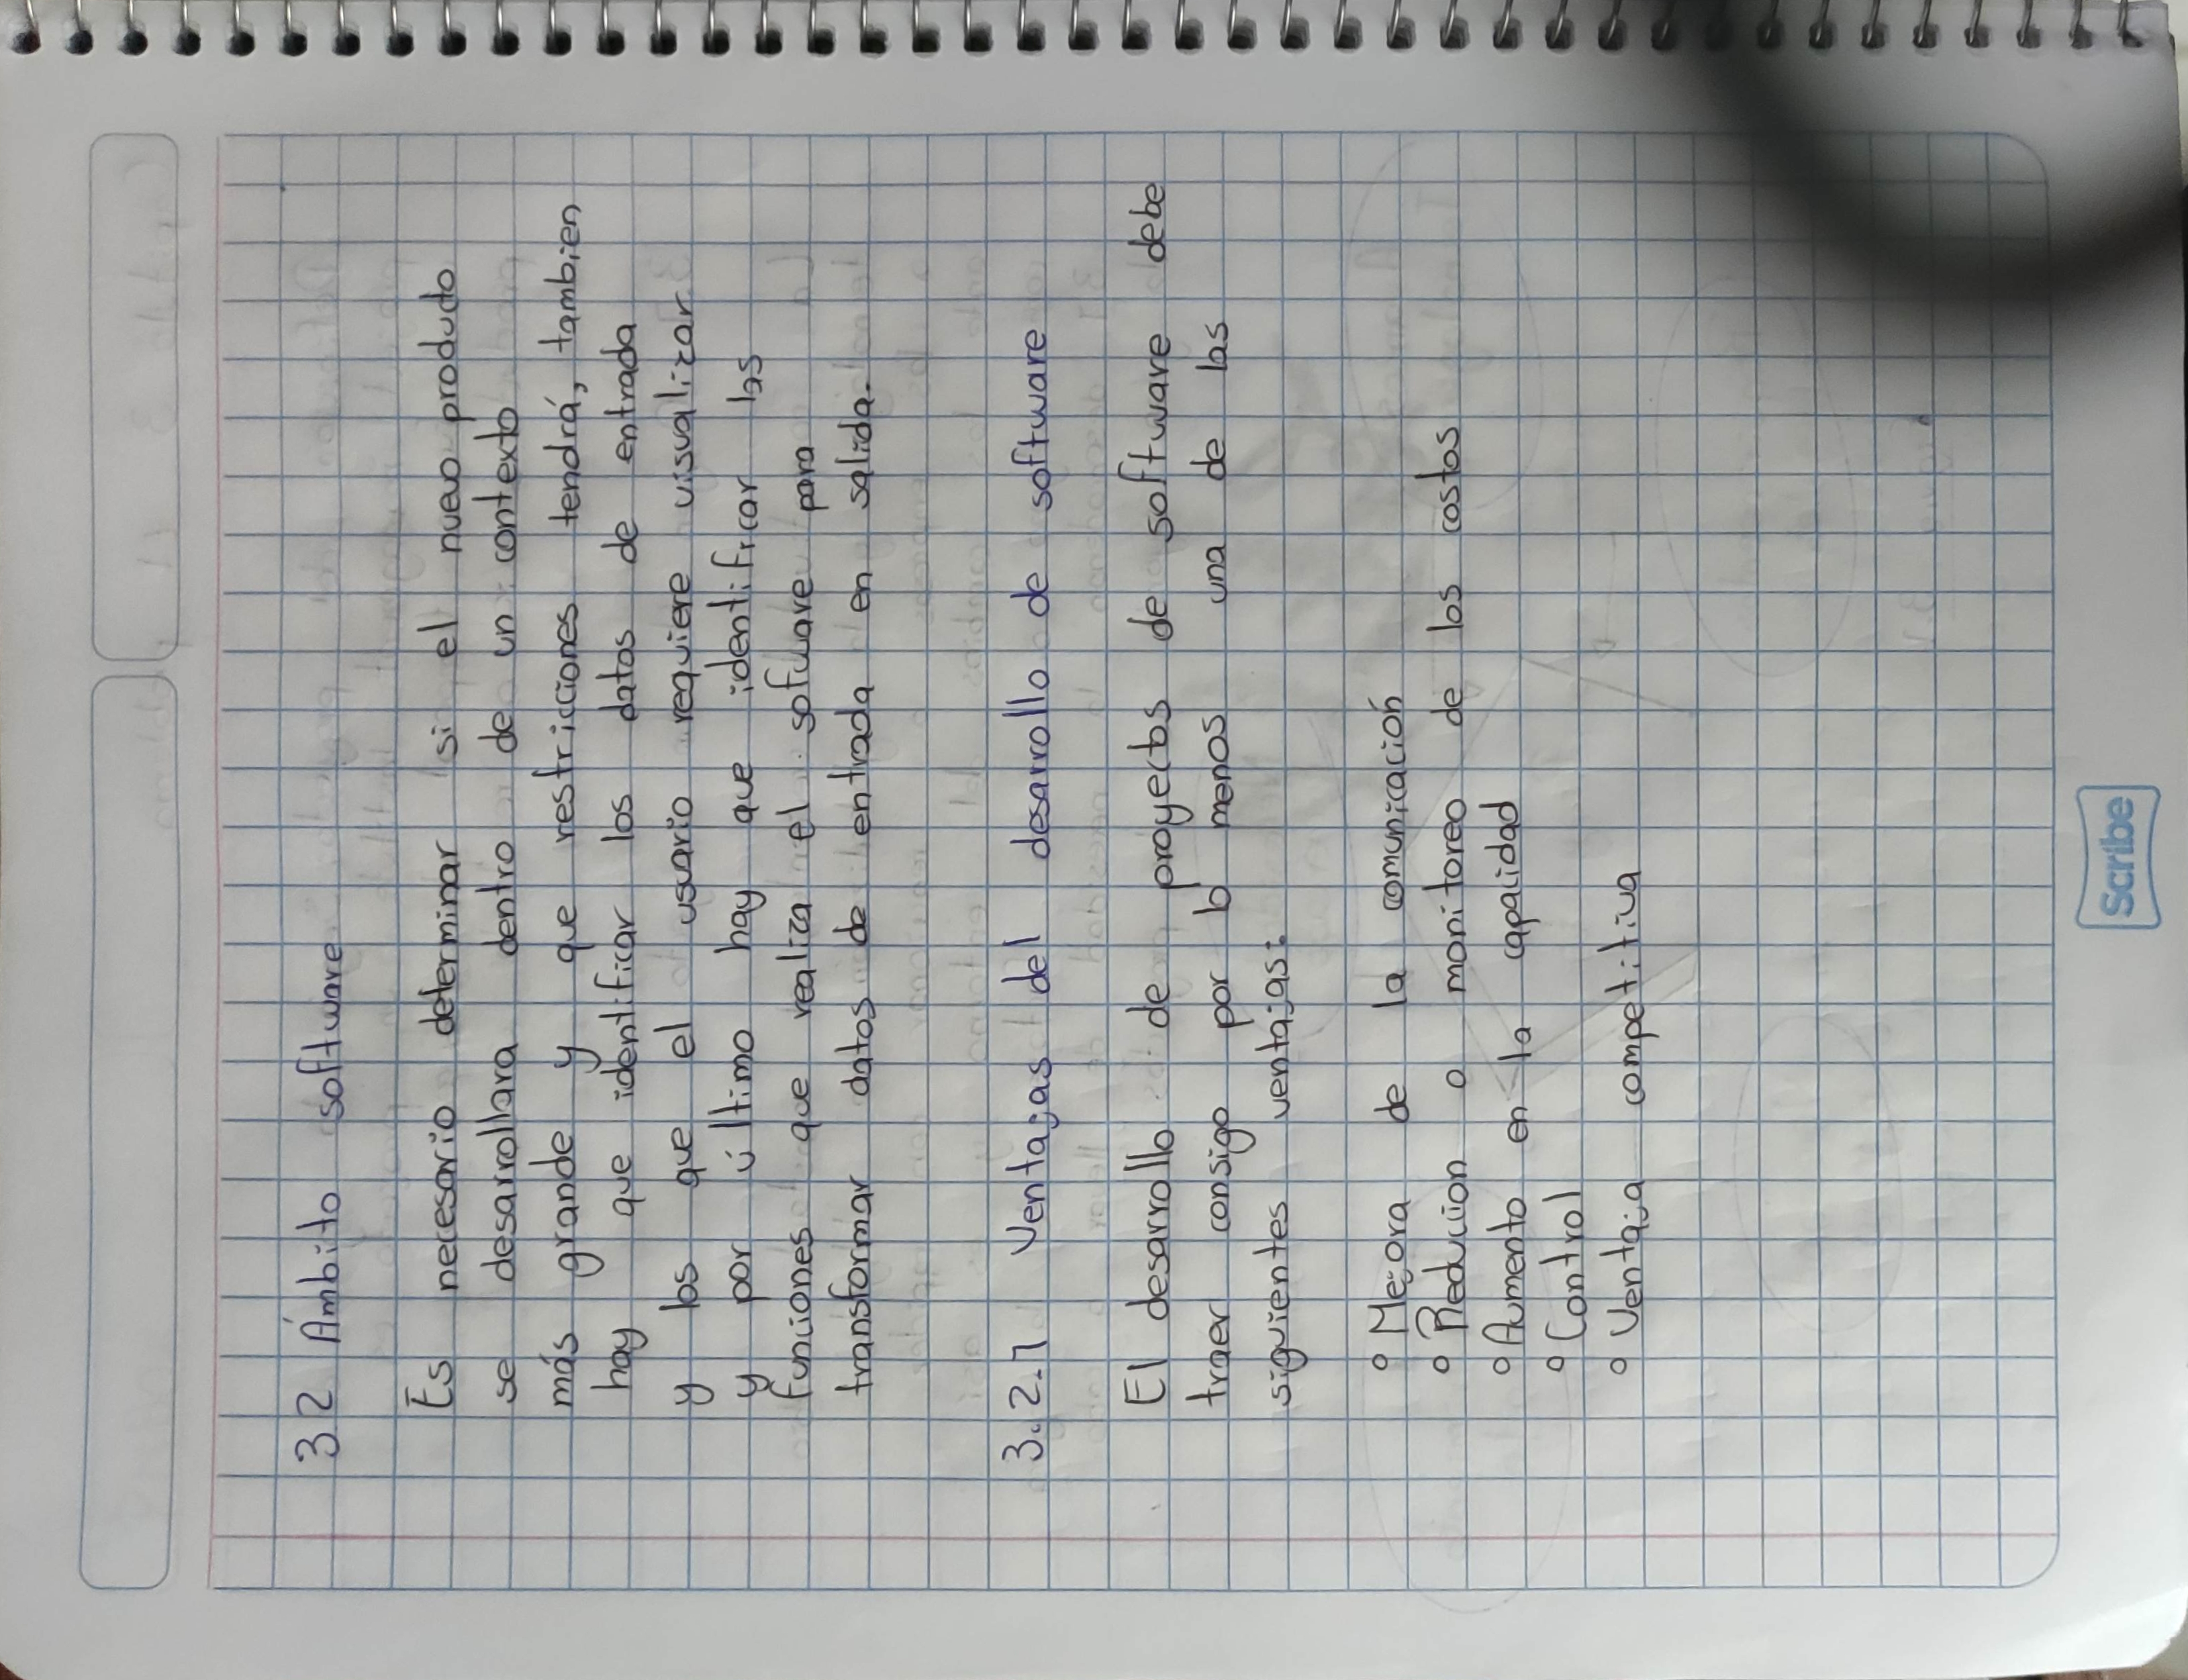 3.2 Ámbito software
Es necesario determinar si el nuevo producto
se desarrollara dentro de un contexto
más grande y que restricciones tendrá, tambien
hay que identificar los datos de entrada
y los que el usuario requiere visualizar
y por último hay que identificar las
funciones que realiza el sofware para
transformar datos de entrada en salida.
3.2.1 Ventajas del desarrollo de software
El desarrollo de proyectos de software debe
traer consigo por lo menos una de las
siguientes ventajas:
° Mejora de la comunicación
° Reduccion o monitoreo de los costos
° Aumento en la capacidad
° Control
° Ventaja competitiva
Scribe